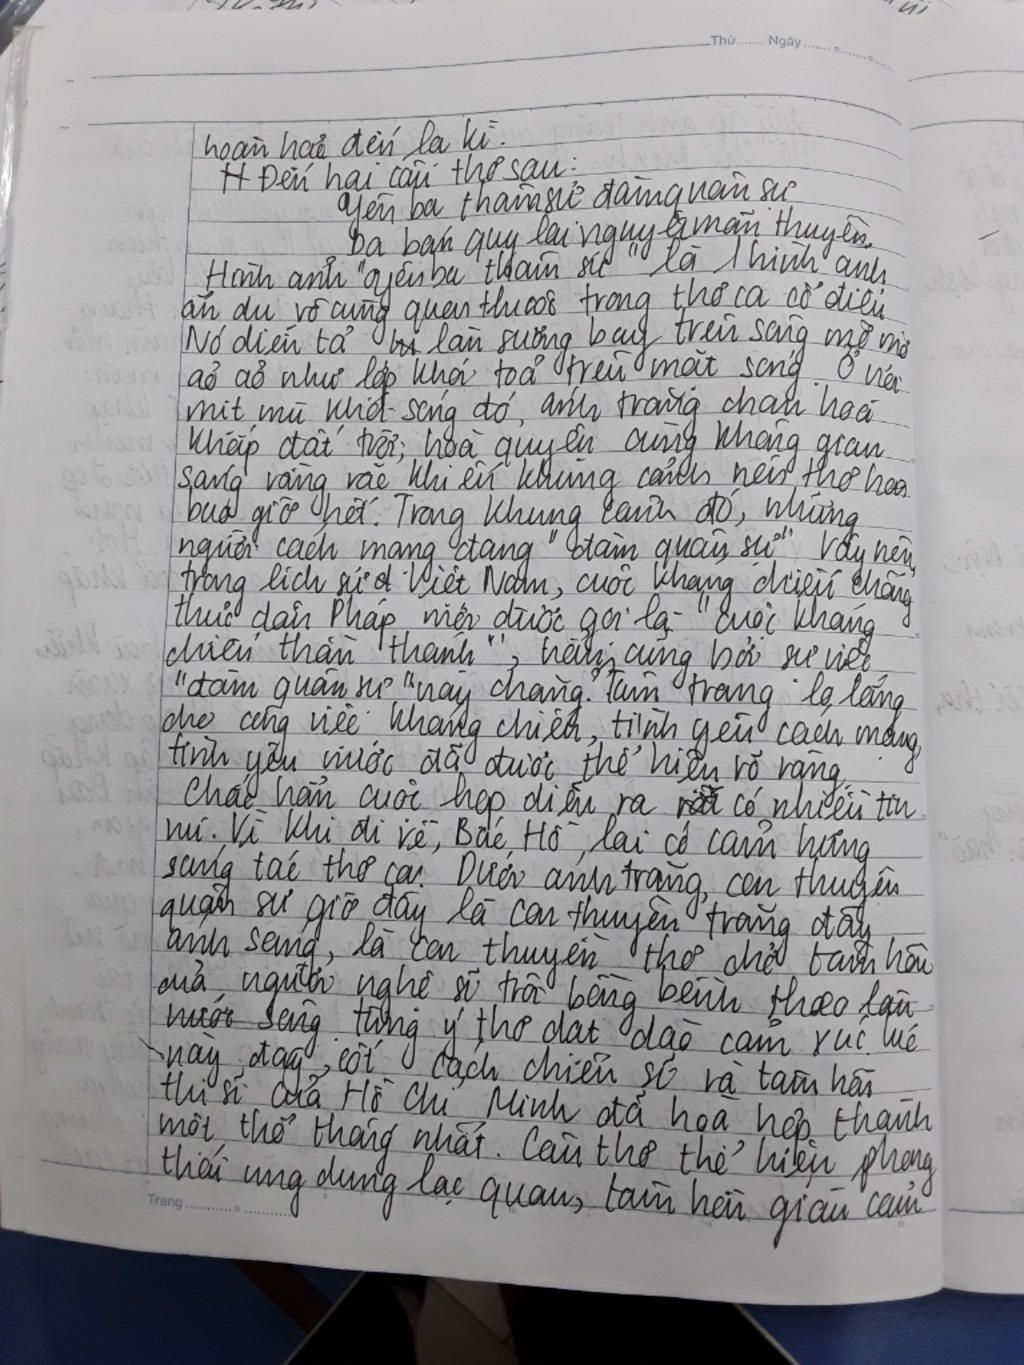 Thứ....... Ngày ........o........o....
hoàn hảo đến la kì.
++ Đến hai câu thơ sau:
Yên ba thâm sứ đàm quân sự
Dạ bán quy lai nguyệt mãn thuyền.
Hình ảnh "yên ba thâm sứ" là 1 hình ảnh
ẩn dụ vô cùng quen thuộc trong thơ ca cổ điển
Nó diễn tả làn sương bay trên sông mờ mờ
ảo ảo như lớp khói toả trên mặt sông. Ở nơi
mịt mù khói sóng đó, ánh trăng chan hoà
khắp đất trời, hoà quyện cùng không gian
sáng vằng vặc khiến khung cảnh nên thơ hơn
bao giờ hết. Trong khung cảnh đó, những
người cách mạng đang "đàm quân sự" Vậy nên,
trong lịch sử Việt Nam, cuộc kháng chiến chống
thực dân Pháp mới được gọi là "cuộc kháng
chiến thần thánh", cũng bởi sự việc
"đàm quân sự" này chăng. Tâm trạng lo lắng
cho công việc kháng chiến, tình yêu cách mạng,
tình yêu nước đã được thể hiện rõ ràng
Chắc hẳn cuộc họp diễn ra có nhiều tín
Vì khi đi về, Bác Hồ lại có cảm hứng
sáng tác thơ ca. Dưới ánh trăng, con thuyền
quân sự giờ đây là con thuyền trăng đầy
ánh sáng, là con thuyền thơ chở tâm hồn
của người nghệ sĩ trôi bồng bềnh theo làn
nước sông từng ý thơ dạt dào cảm xúc. Lúc
này đây, cốt cách chiến sĩ và tâm hồn
thi sĩ của Hồ Chí Minh đã hoà hợp thành
một thể thống nhất. Câu thơ thể hiện phong
thái ung dung lạc quan, tâm hồn giàu cảm
Trang ...........o...........